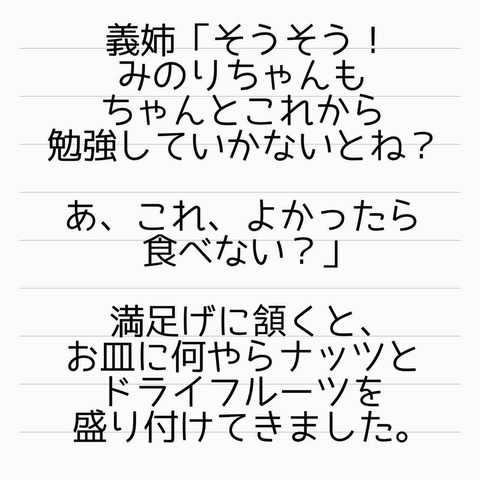 義姉「そうそう！
みのりちゃんも
ちゃんとこれから
勉強していかないとね？
あ、これ、よかったら
食べない？」
満足げに頷くと、
お皿に何やらナッツと
ドライフルーツを
盛り付けてきました。